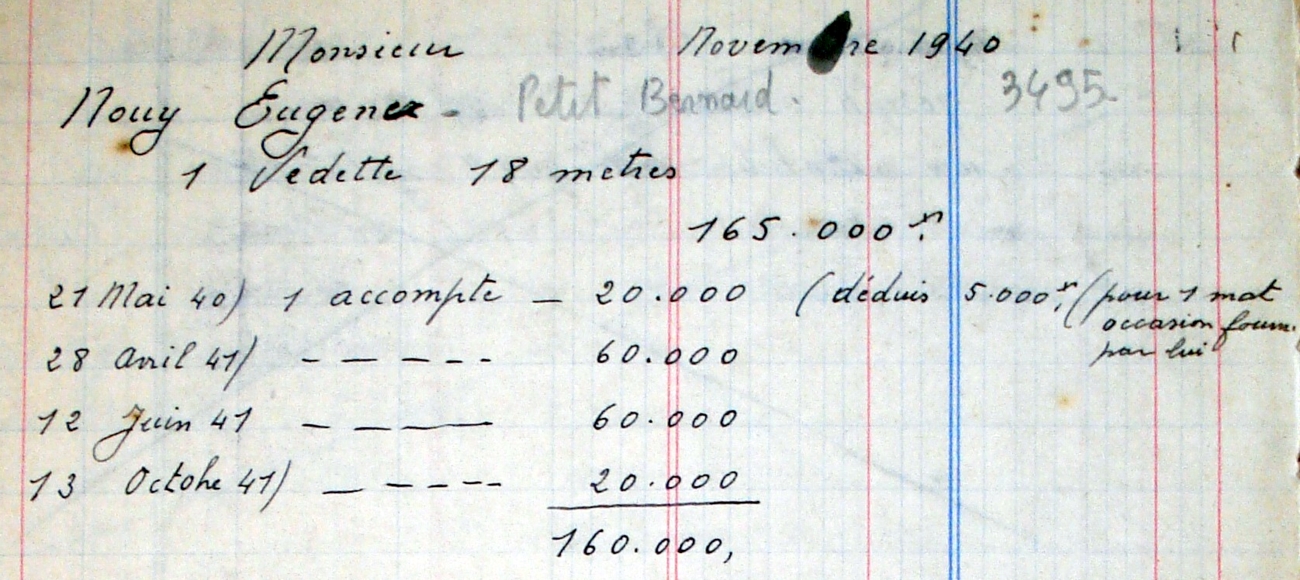 Monsieur Novembre 1940
Nouy Eugene - Petit Bernard. 3495
1 Vedette 18 metres
165.000 fr.
21 Mai 40) 1 accompte - 20.000 (déduis 5.000 fr. (pour 1 mat
occasion fourni
par lui
28 Avril 41) - - - - - 60.000
12 Juin 41 - - - - 60.000
13 Octobre 41) - - - - - 20.000
160.000,